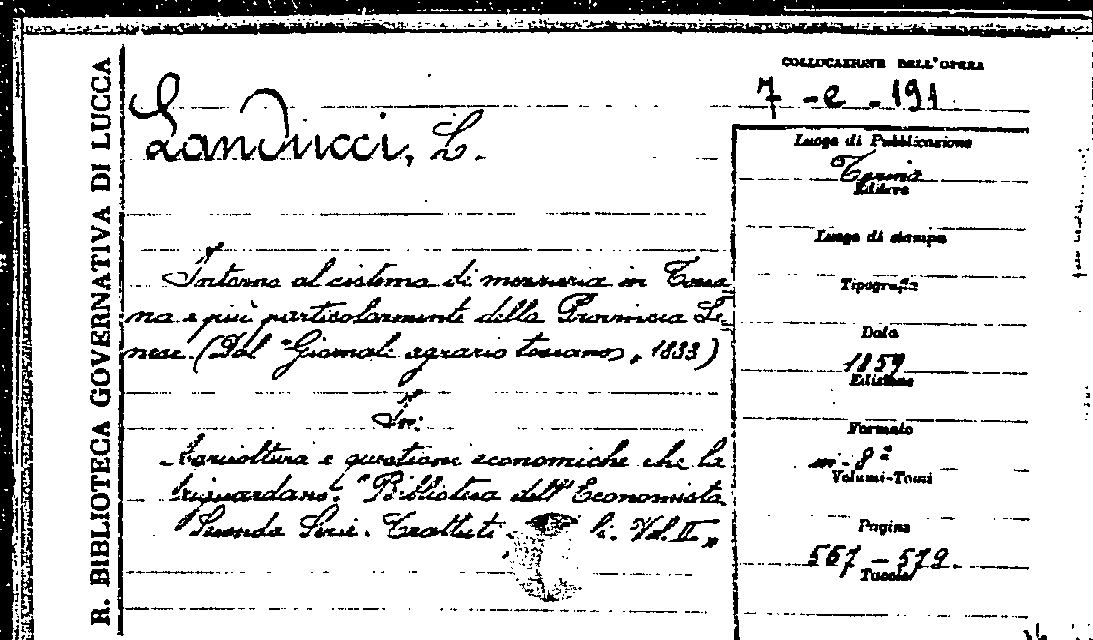 R. BIBLIOTECA GOVERNATIVA DI LUCCA
COLLOCAZIONE DELL'OPERA
7 - e - 191
Landucci, L.
Luogo di Pubblicazione
Torino
Editore
Luogo di stampa
Intorno al sistema di mezzeria in Tosca
Tipografia
na e più particolarmente della Provincia Se
Data
nese. (Dal "Giornale agrario toscano, 1833)
1859
Edizione
In:
Formato
Agricoltura e questioni economiche che la
in-8º
riguardano. "Biblioteca dell'Economista
Volumi-Tomi
Seconda Serie. Trattati
li. Vol. II„
Pagine
567-579.
Tavole